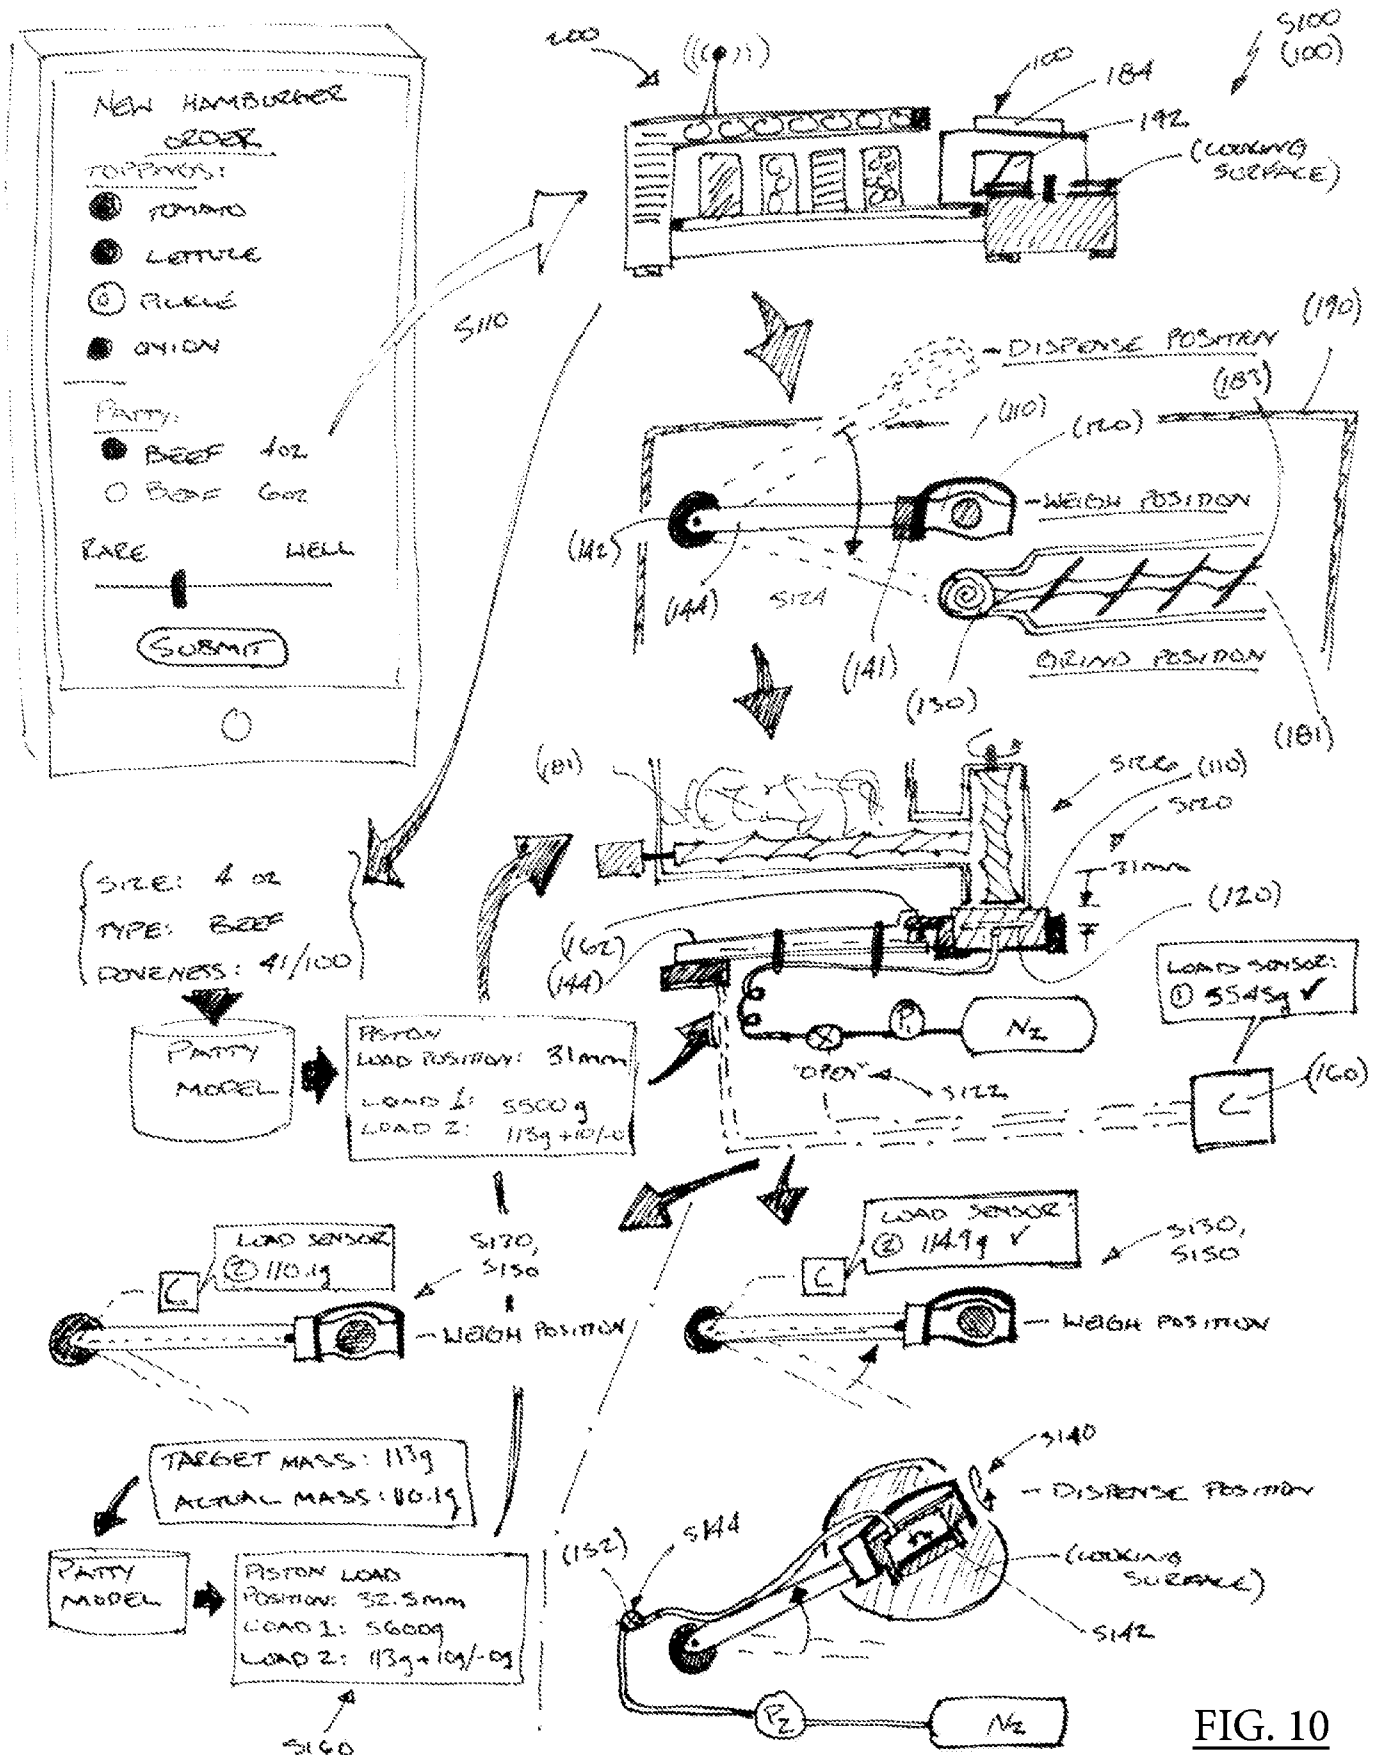 NEW HAMBURGER
ORDER
TOPPINGS:
TOMATO
LETTUCE
PICKLE
ONION
PATTY:
BEEF 4oz
BEEF 6oz
RARE WELL
SUBMIT
S110
200
100
184
192
S100
(100)
(COOKING
SURFACE)
(190)
DISPENSE POSITION
(183)
(110)
(120)
WEIGH POSITION
(142)
(144)
S124
(141)
(130)
GRIND POSITION
(181)
(181)
S126
(110)
S120
31mm
(120)
(162)
(144)
SIZE: 4 oz
TYPE: BEEF
DONENESS: 41/100
PATTY
MODEL
PISTON
LOAD POSITION: 31mm
LOAD 1: 5500g
LOAD 2: 113g +10/-0
N2
"OPEN"
S122
LOAD SENSOR:
① 5545g ✓
C
(160)
LOAD SENSOR
② 110.1g
C
S130,
S150
WEIGH POSITION
LOAD SENSOR
② 114.9g ✓
C
S130,
S150
WEIGH POSITION
TARGET MASS: 113g
ACTUAL MASS: 110.1g
PATTY
MODEL
PISTON LOAD
POSITION: 32.5mm
LOAD 1: 5600g
LOAD 2: 113g +10g/-0g
S160
S140
DISPENSE POSITION
(152)
S144
(COOKING
SURFACE)
S142
P2
N2
FIG. 10